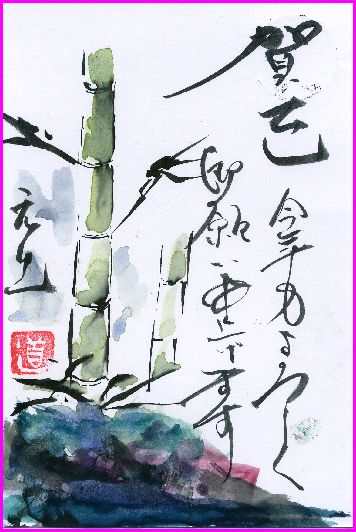 賀正
今年もよろしく
御願い申上げます
道